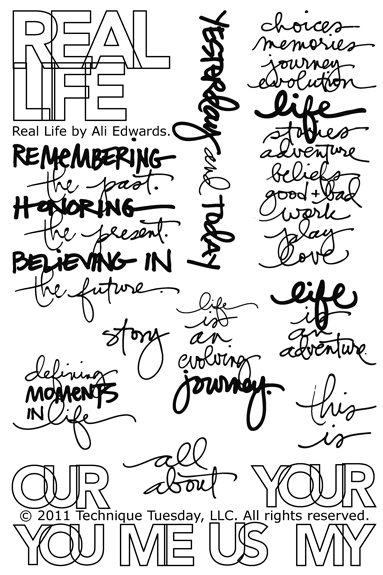 REAL
LIFE
Real Life by Ali Edwards.
REMEMBERING
the past.
HONORING
the present.
BELIEVING IN
the future.
YESTERday and TODAY
choices
memories
journey
evolution
life
stories
adventure
beliefs
good + bad
work
play
love
story
life
is
an
evolving
journey.
life
is
an
adventure.
defining
MOMENTS
IN life
this
is
all
about
OUR
YOUR
© 2011 Technique Tuesday, LLC. All rights reserved.
YOU ME US MY